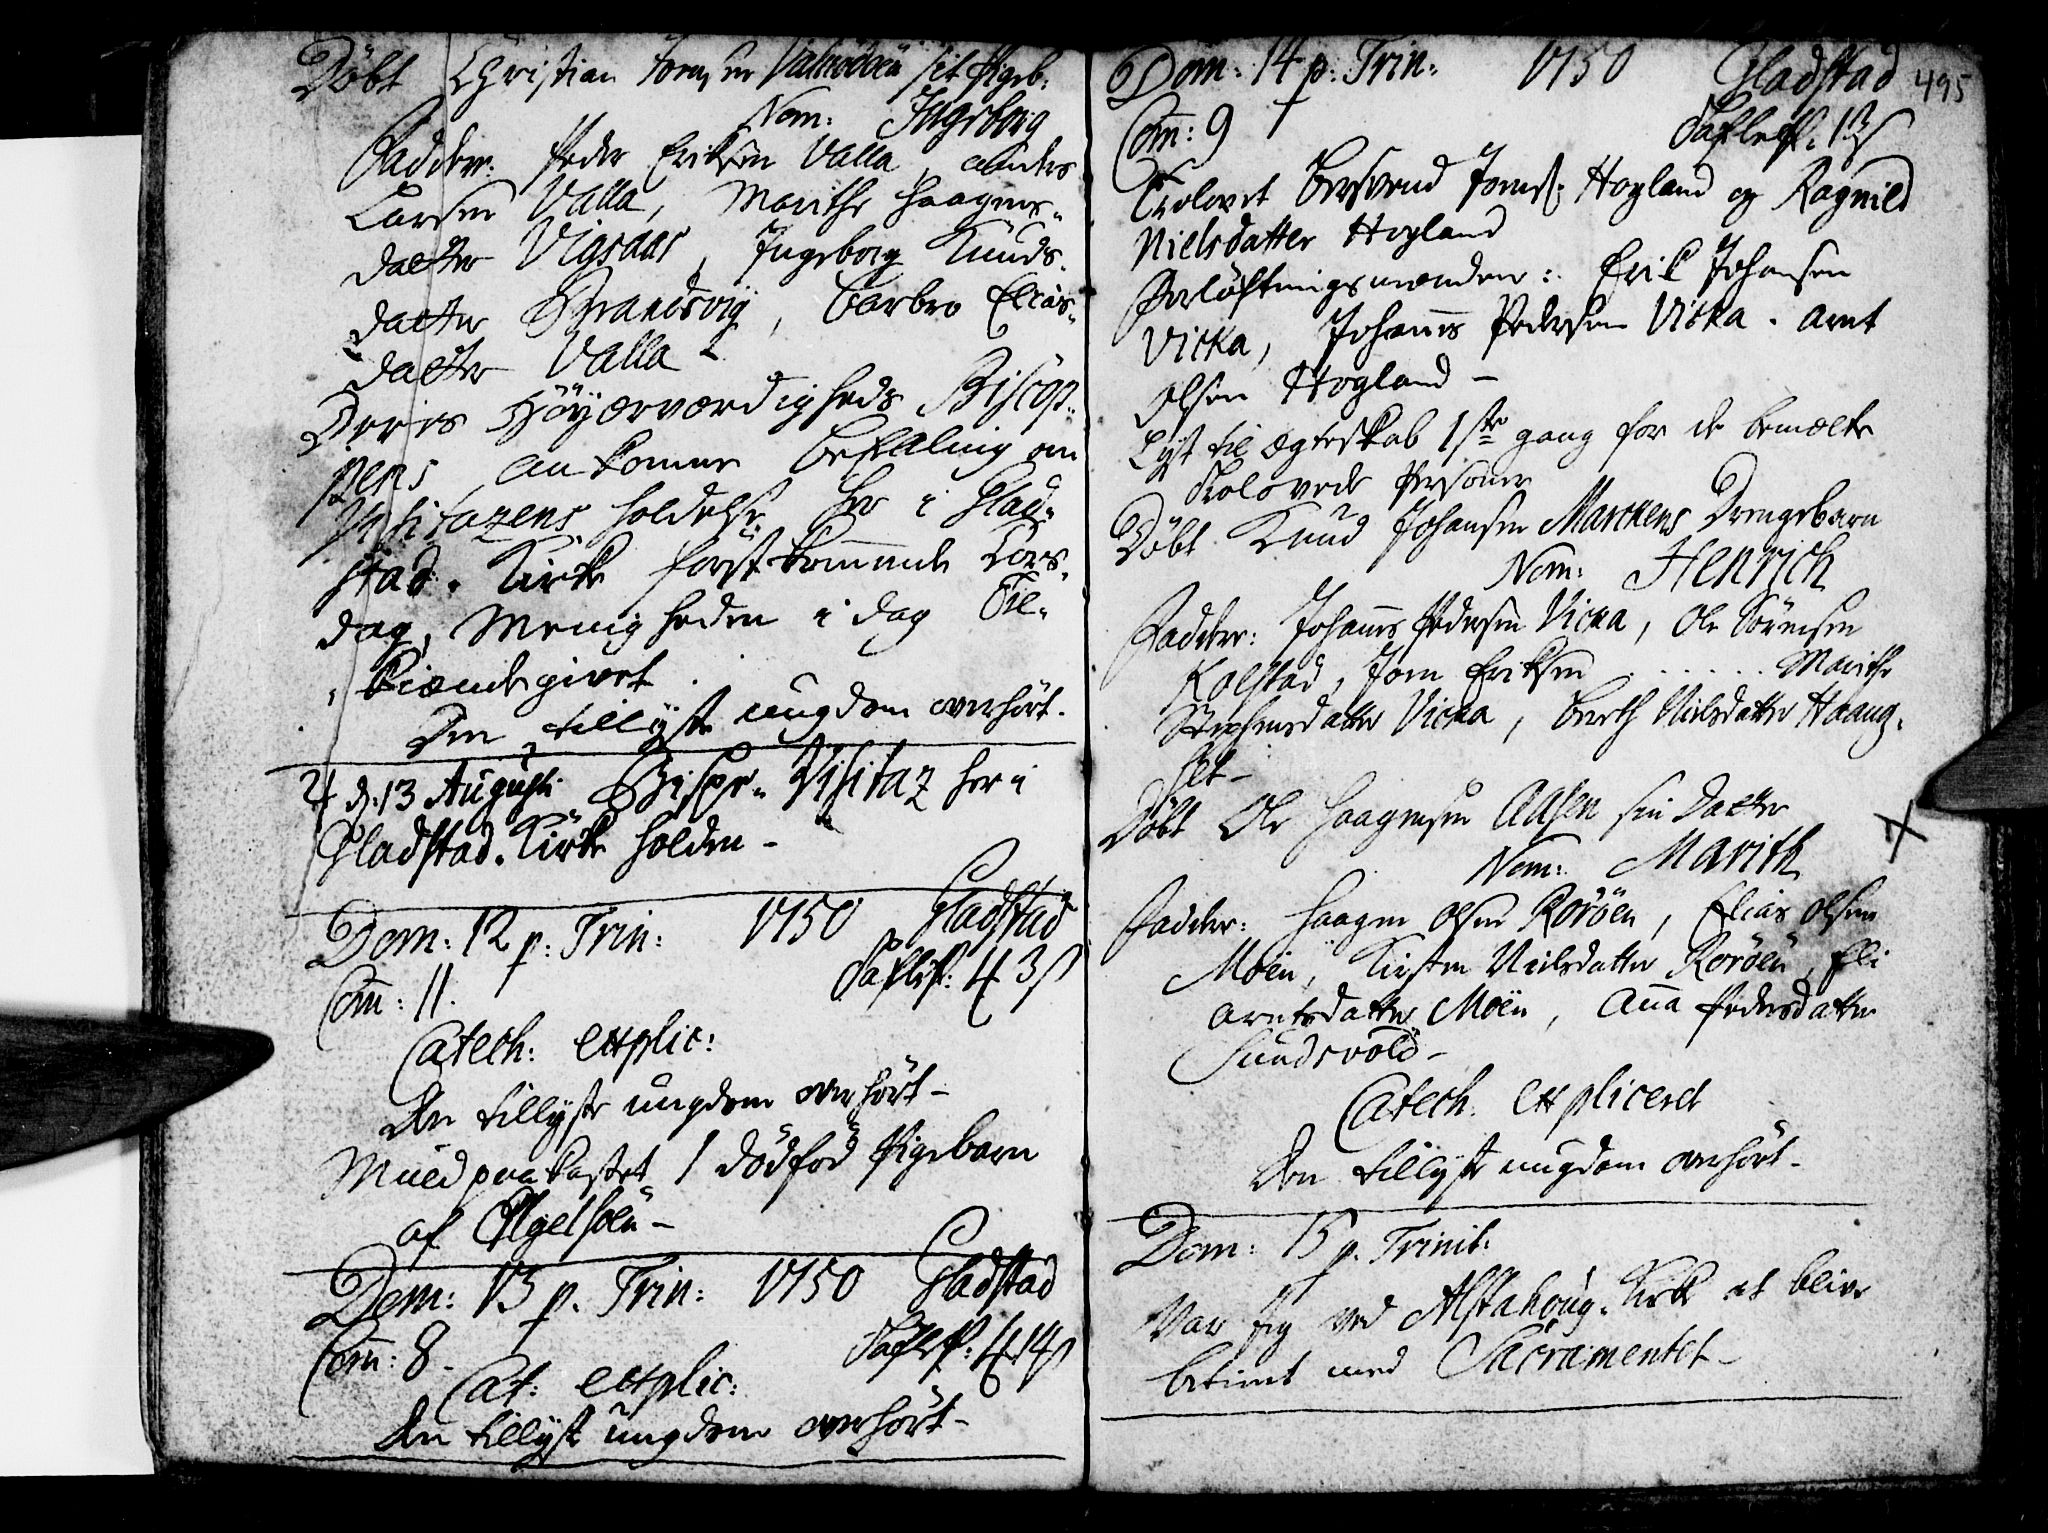 Döbt Christian Jons en Valnödöen sit Pigeb:
Nom: Ingeborg
Faddere: Peder Eriksen Valla, anders
Larsen Valla, Marithe Haagens-
datter Vigsaas, Ingeborg Knuds-
datter Strandsvig, Barbro Elias-
datter Valla
Deres Höyærværdigheds Biscop-
pens ankomne befaling om
Visitazens holdelse her i Glad-
stad. Kirke först kommende Tors-
dag, Menigheden i dag Til-
kiændegivet.
Den tillyste ungdom overhört.
♃ d: 13 Augusti Bispe-Visitaz her i
Gladstad. Kirke holden -
Dom: 12 p: Trin: 1750 Gladstad
Com: 11. Taflep: 4 3 s
Catech: explic:
den tillyste ungdom overhört -
Muld paakastet 1 dödföd Pigebarn
af
Dom: 13 p. Trin: 1750 Gladstad
Com: 8. Taflep: 4 14 s
Cat: explic:
den tillyste ungdom overhört -
Dom: 14 p: Trin: 1750 Gladstad 495
Com: 9 Taflep:
Trolovet Bersvend Jons: Hogland og Ragnild
Nielsdatter Hogland
Forlöftningsmændene: Erik Johansen
Vicka, Johannes Pedersen Vicka. arnt
Olsen Hogland -
Lyst til ægteskab 1ste gang for de bemælte
trolovede Personer
Döbt Knud Johansen Marckens Drengebarn
Nom: Henrich
Faddere: Johannes Pedersen Vicka, Ole Sörensen
Kolstad, Jon Eriksen ..... Marithe
Stephensdatter Vicka, Berth Nielsdatter Haang-
set -
Döbt Ole Haagensen Aasen sin Datter
Nom: Marith
Faddere: Haagen Olsen Roröen, Elias Olsen
Moen, Kirsten Nielsdatter Roröen, Eli
arntsdatter Moen, Anna Pedersdatter
Sundsvold -
Catech: expliceret
den tillyste ungdom overhört -
Dom: 15 p. Trinit:
Var jeg ved Alstahoug. Kirke at blive
betient med Sacramentet -